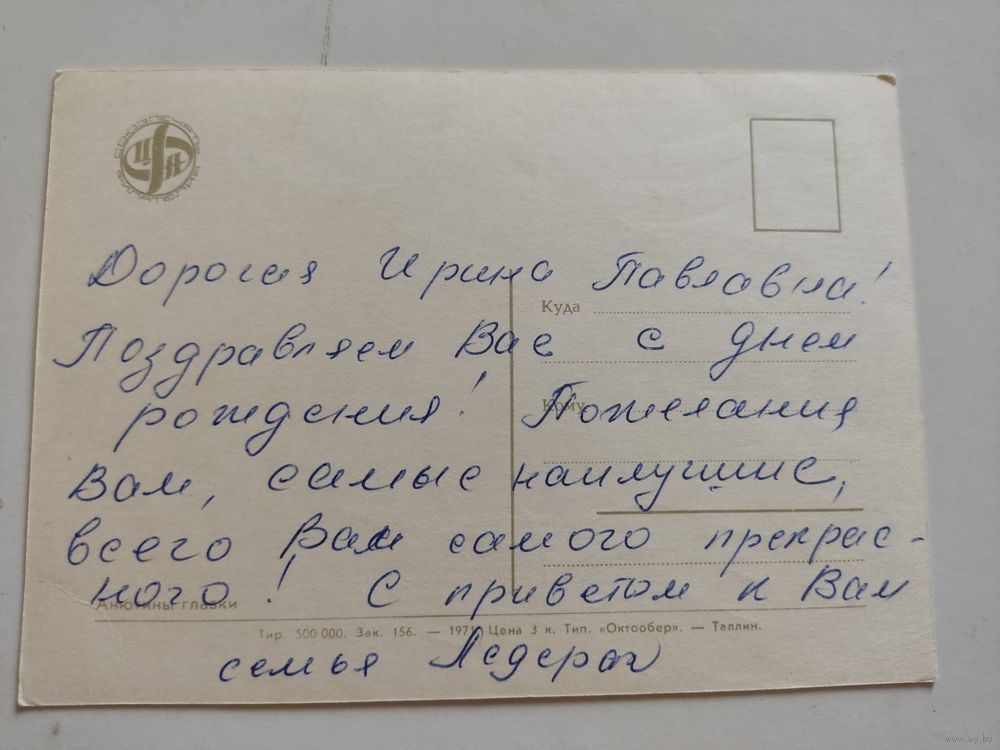 СОЮЗПЕЧАТЬ
ЦФА
ФИЛАТЕЛИЯ
Дорогая Ирина Павловна!
Куда
Поздравляем Вас с днем
Кому
рождения! Пожелания
Вам, самые наилучшие,
всего Вам самого прекрас-
ного! С приветом к Вам
Анютины глазки
Тир. 500 000. Зак. 156. — 1971. Цена 3 к. Тип. «Октообер». — Таллин.
семья
www.ay.by